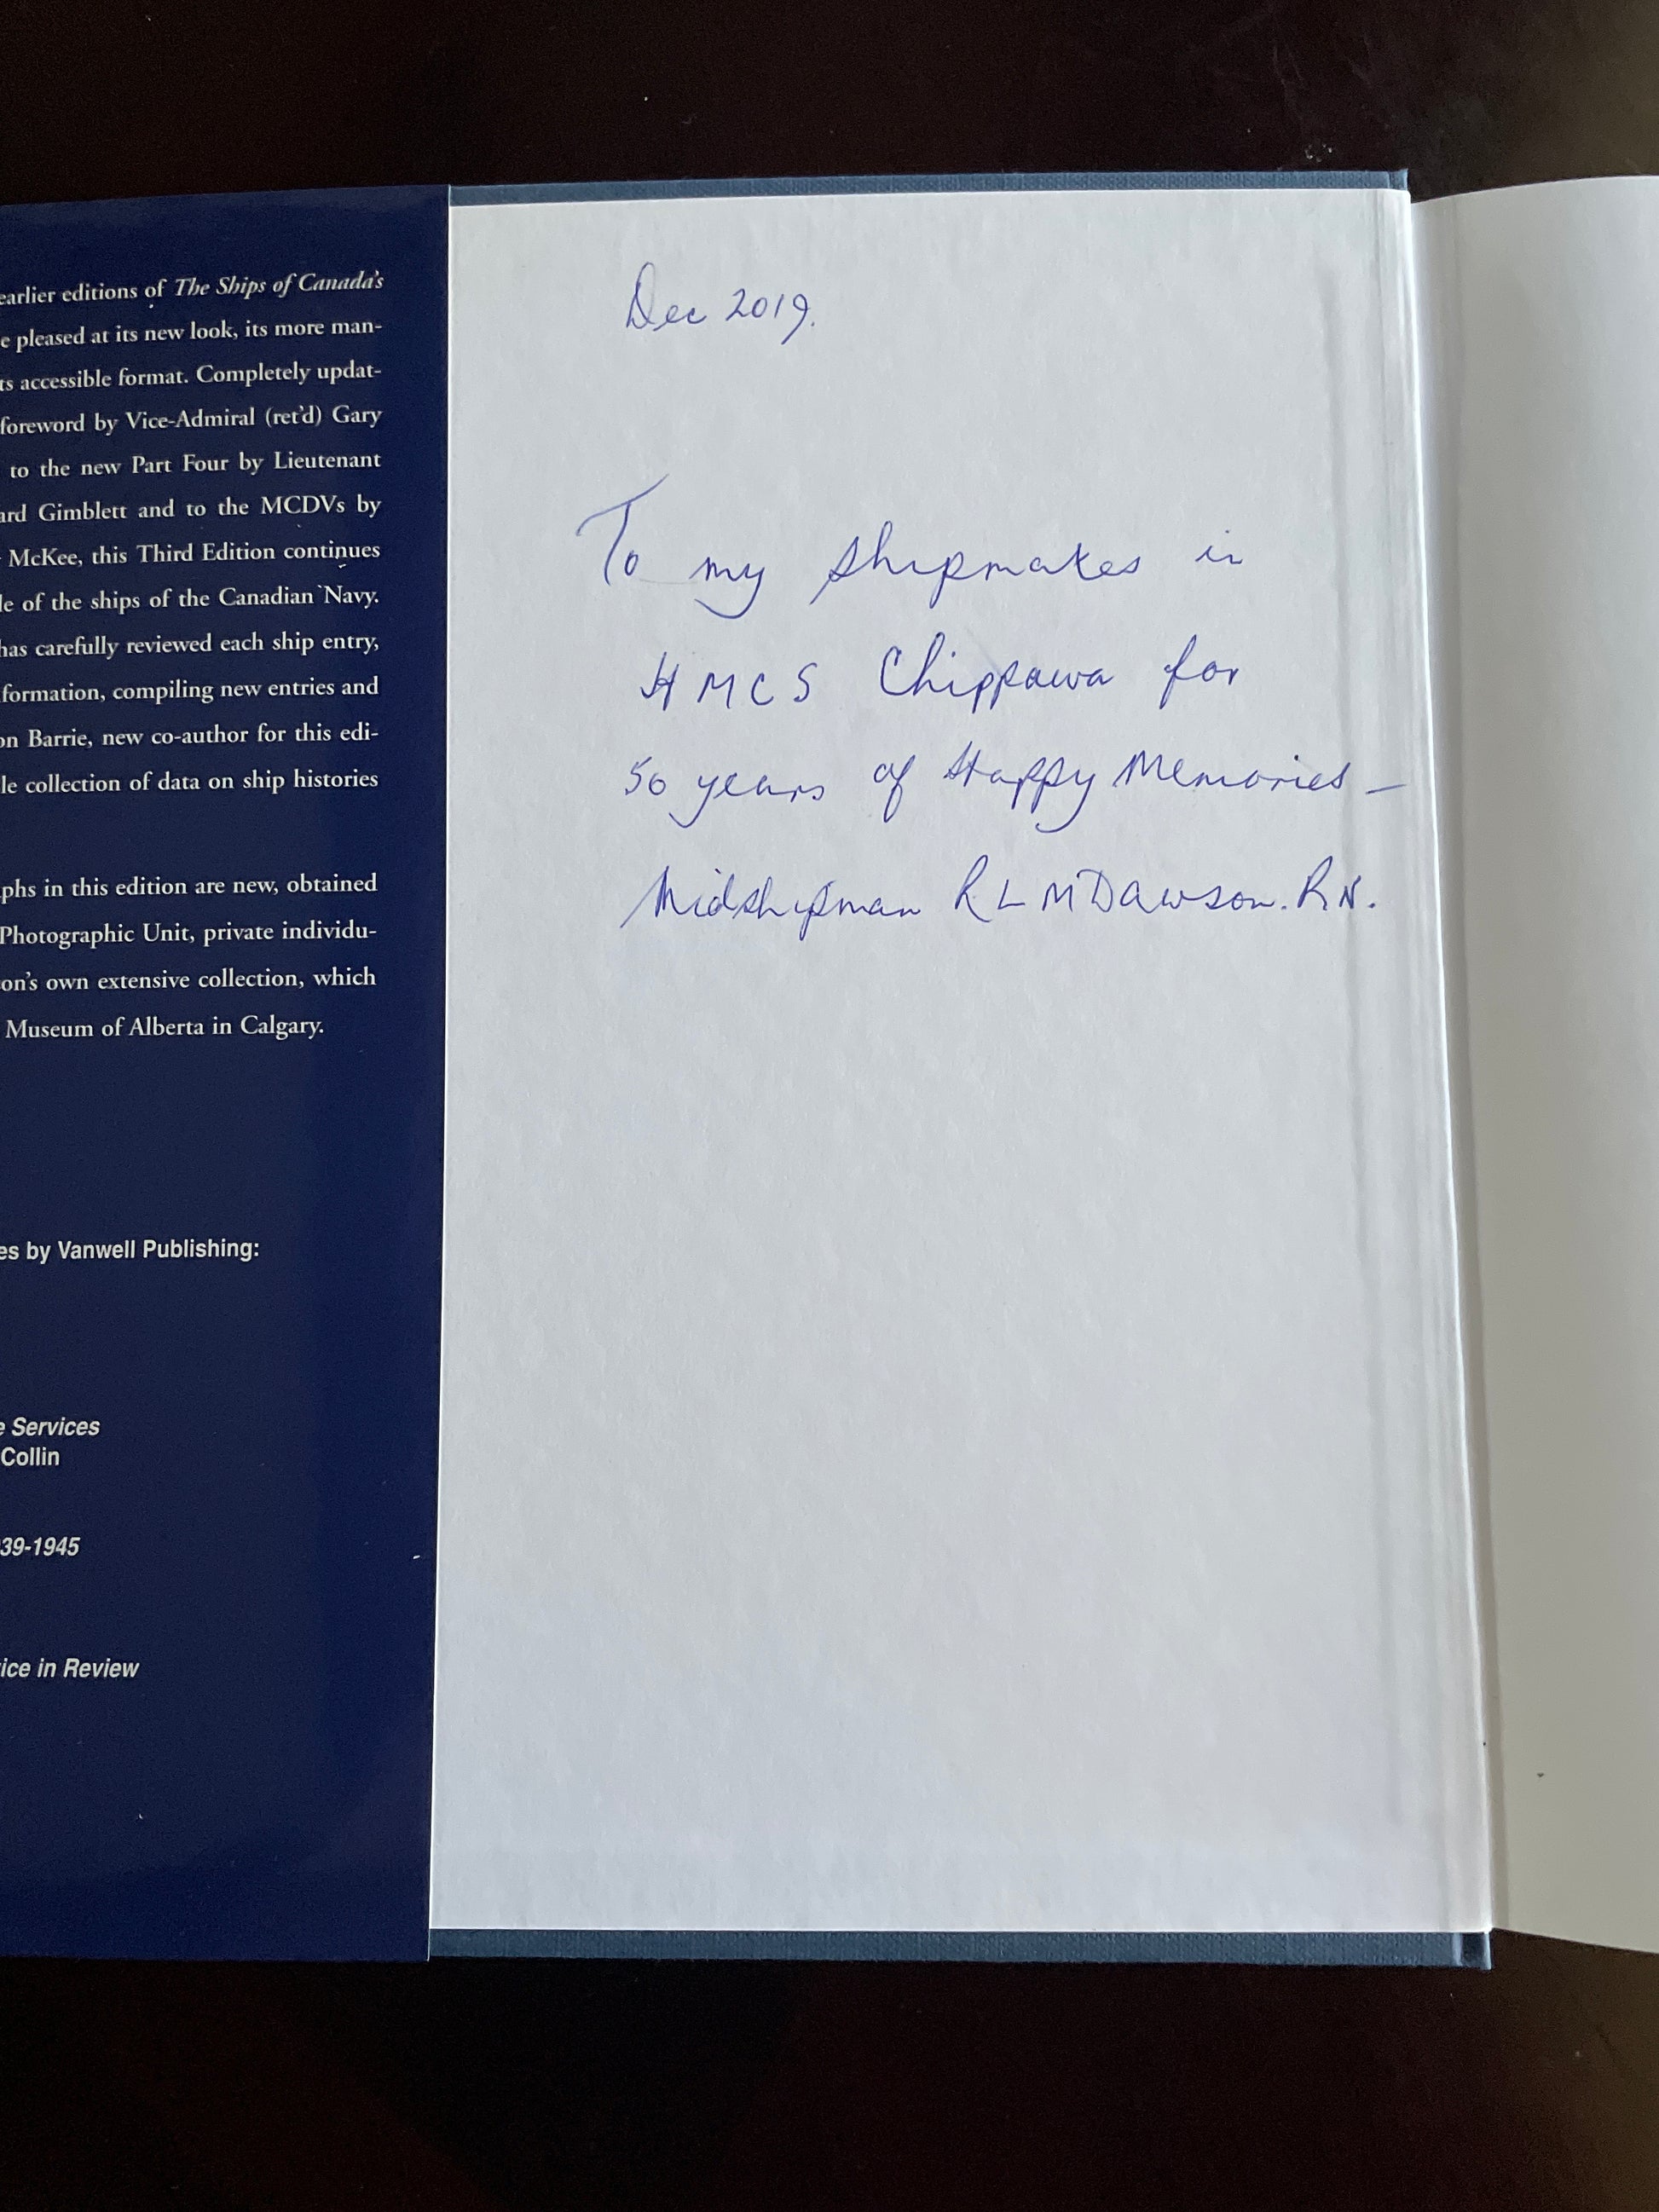 earlier editions of The Ships of Canada's
e pleased at its new look, its more man-
ts accessible format. Completely updat-
foreword by Vice-Admiral (ret'd) Gary
to the new Part Four by Lieutenant
ard Gimblett and to the MCDVs by
McKee, this Third Edition continues
le of the ships of the Canadian Navy.
has carefully reviewed each ship entry,
formation, compiling new entries and
on Barrie, new co-author for this edi-
le collection of data on ship histories
phs in this edition are new, obtained
Photographic Unit, private individu-
on's own extensive collection, which
Museum of Alberta in Calgary.
es by Vanwell Publishing:
e Services
Collin
39-1945
ice in Review
Dec 2019.
To my shipmates in
HMCS Chippawa for
50 years of Happy Memories –
Midshipman R L M Dawson. R.N.